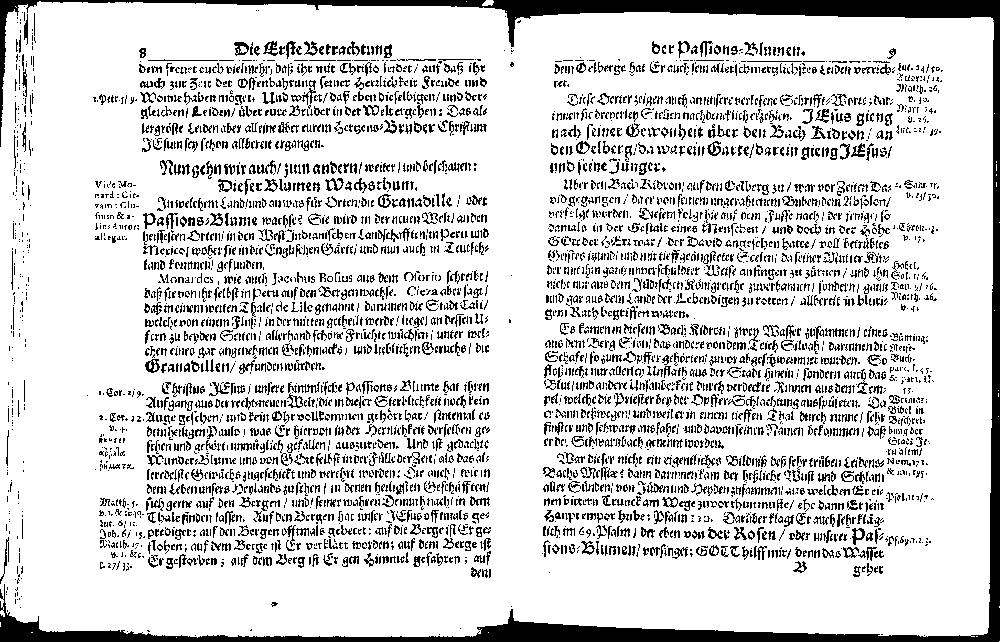 8 Die Erste Betrachtung
dern freuet euch vielmehr, daß ihr mit Christo leidet / auf daß ihr
auch zur Zeit der Offenbahrung seiner Herrlichkeit Freude und
1. Petr. 5/ 9. Wonne haben möget. Und wisset / daß eben dieselbigen / und der-
gleichen / Leiden / über eure Brüder in der Welt ergehen: Das al-
lergröste Leiden aber alleine über eurem Hertzens-Bruder Christum
JEsum sey schon allbereit ergangen.
Nun gehn wir auch / zum andern / weiter / und beschauen:
Dieser Blumen Wachsthum.
In welchem Land / und an was für Orten / die Granadille / oder
Passions-Blume wachse? Sie wird in der neuen Welt / an den
heissesten Orten / in den West Indianischen Landschafften / in Peru und
Mexico / woher sie in die Englischen Gärte / und nun auch in Teutsch-
land kommen / gefunden.
Monardes, wie auch Jacobus Bosius aus dem Osorio schreibt /
daß sie von ihr selbst in Peru auf den Bergen wachse. Cieza aber sagt /
daß in einem weiten Thale / cie Lile genant / darumen die Stadt Cali /
welche von einem Fluß / in der mitten getheilt werde / liege / an dessen U-
fern zu beyden Seiten / allerhand schöne Früchte wüchsen / unter wel-
chen eines gar angenehmen Geschmacks / und lieblichen Geruchs / die
Granadillen / gefunden würden.
Christus JEsus / unsere himmlische Passions-Blume hat ihren
1. Cor. 2/ 9. Aufgang aus der recht neuen Welt / die in dieser Sterblichkeit noch kein
2. Cor. 12. Auge gesehen / und kein Ohr vollkommen gehört hat / sintemal es
v. 4. dem heiligen Paulo / was Er hiervon in der Herrlichkeit derselben ge-
sehen und gehört / unmüglich gefallen / auszureden. Und ist gedachte
Wunder-Blume uns von GOtt selbst in der Fülle der Zeit / als das al-
leredelste Gewächs zugeschickt und verehrt worden: Die auch / wie in
dem Leben unsers Heylands zu sehen / in denen heiligsten Geschäfften /
Matth. 5. sich gerne auf den Bergen / und seiner wahren Demuth nach / in dem
Thale finden lassen. Auf den Bergen hat unser JEsus offtmals ge-
Luc. 6/ 12. prediget: auf den Bergen offtmals gebetet: auf die Berge ist Er ge-
Joh. 6/ 15. flohen; auf dem Berge ist Er verklärt worden; auf dem Berge ist
Matth. 17. Er gestorben; auf dem Berg ist Er gen Himmel gefahren; auf
dem
der Passions-Blumen. 9
dem Oelberge hat Er auch sein allerschmertzlichstes Leiden verrich-
tet.
Diese Oerter zeigen auch an unsere verlesene Schrifft-Worte; dar-
innen sie dreyerley Stellen nachdencklich erzehlen. JEsus gieng
nach seiner Gewonheit über den Bach Kidron / an
den Oelberg / da war ein Garte / darein gieng JEsus /
und seine Jünger.
Uber den Bach Kidron / auf den Oelberg zu / war vor Zeiten Da-
vid gegangen / da er von seinem ungerathenem Buben dem Absolon /
verfolgt worden. Diesem folgt hie auf dem Fusse nach / der jenige / so
damals in der Gestalt eines Menschen / und doch in der Höhe
GOtt der HErr war / der David angesehen hatte / voll betrübtes
Geistes itzund / und mit tieff geängsteter Seelen / da seiner Mutter Kin-
der mit ihm gantz unverschuldter Weise anfingen zu zürnen / und ihn
nicht nur aus dem Jüdischen Königreiche zu verbannen / sondern / gantz
und gar aus dem Lande der Lebendigen zu rotten / allbereit in bluti-
gem Rath begriffen waren.
Es kamen in diesem Bach Kidron / zwey Wasser zusammen / eines
aus dem Berg Sion / das andere von dem Teich Siloah / darinnen die
Schafe / so zum Opffer gehörten / zuvor abgeschwemmet wurden. So
floß nicht nur allerley Unflath aus der Stadt hinein / sondern auch das
Blut / und andere Unsauberkeit durch verdeckte Rinnen aus dem Tem-
pel / welche die Priester bey der Opffer-Schlachtung ausspületen. Da
er dann deßwegen / und weil er in einem tieffen Thal durch runne / sehr
finster und schwartz aussahe / und davon seinen Namen bekommen / daß
er der Schwartzbach genennt worden.
War dieser nicht ein eigentliches Bildniß deß sehr trüben Leidens-
Bachs Messiæ? dann darinnen kam der heßliche Wust und Schlam
aller Sünden / von Jüden und Heyden zusammen / aus welchen Er ei-
nen bittern Trunck am Wege zuvor thun muste / ehe dann Er sein
Haupt empor hube: Psalm 110. Darüber klagt Er auch sehr kläg-
lich im 69. Psalm / der eben von der Rosen / oder unserer Pas-
sions-Blumen / vorsinget; GOTT hilff mir / denn das Wasser
B gehet